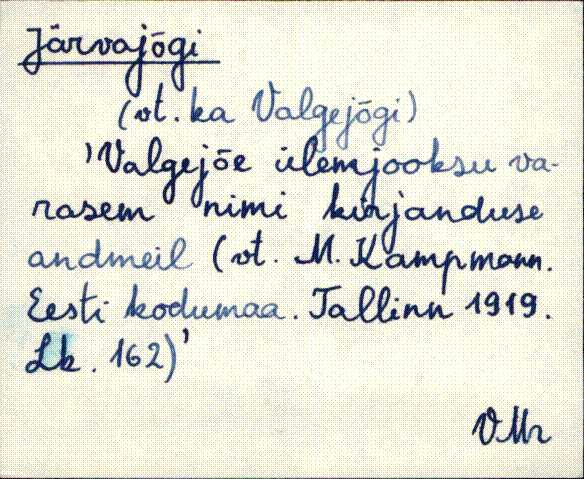 Järvajõgi
(vt. ka Valgejõgi)
'Valgejõe ülemjooksu va-
rasem nimi kirjanduse
andmeil (vt. M. Kampmann.
Eesti kodumaa. Tallinn 1919.
Lk. 162)'
VMr